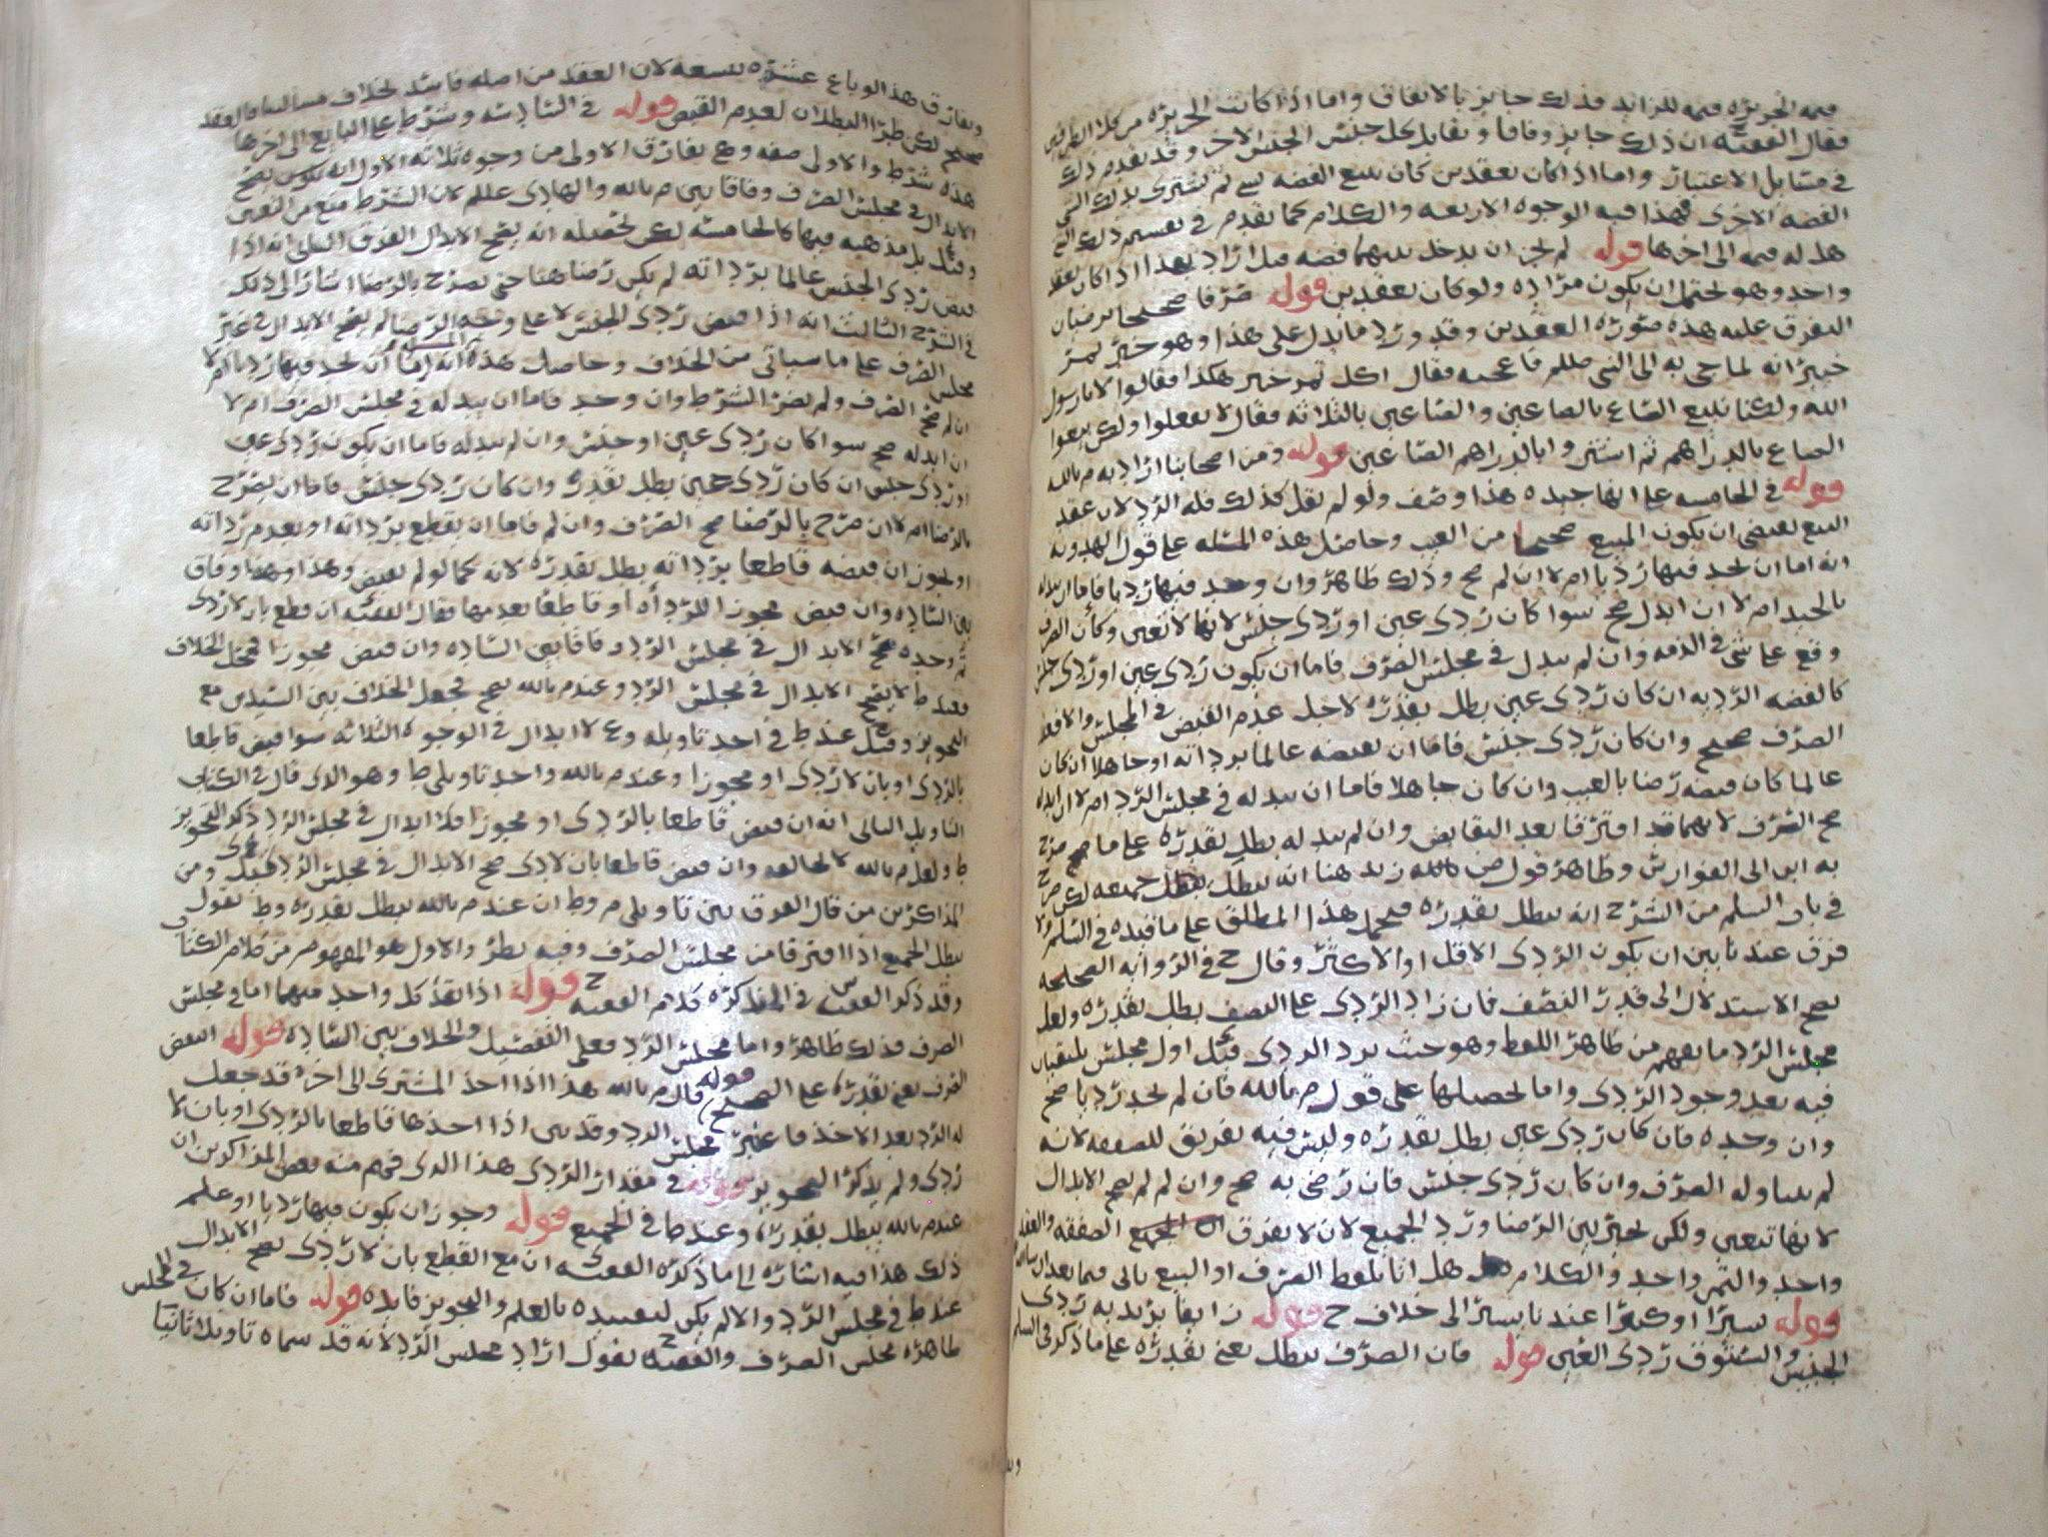 قيمه الجريره قيمه للزايد فذلك جايز بالاتفاق واما اذا كانت الجريره من كلا الطرفين
فقال الفقيه ح ان ذلك جايز وفاقا ويقابل كل جنس الجنس الاخر وقد تقدم ذلك
في مسايل الاعتبار واما اذا كان بعقدين كان يبيع الفضه بشي ثم يشتري بذلك الشي
الفضه الاخرى فهذا فيه الوجوه الاربعه والكلام كما تقدم في تقسيم ذلك
هل له قيمه الى اخرها قوله لم يجز ان يدخل بينهما فضه قيل اراد بهذا اذا كان بعقد
واحد وهو يحتمل ان يكون مراده ولو كان بعقدين قوله صرفا صحيحا يرضيان
التفرق عليه هذه صوره العقدين وقد ورد ما يدل على هذا وهو خبر تمر
خيبر انه لما جي به الى النبي صللم فاعجبه فقال اكل تمر خيبر هكذا فقالوا لا يا رسول
الله ولكنا نبيع الصاع بالصاعين والصاعين بالثلاثه فقال لا تفعلوا ولكن بيعوا
الصاع بالدراهم ثم اشتروا بالدراهم الصاعين قوله ومن اصحابنا اراد به م بالله
قوله في الخامسه على انها جيده هذا وصف ولو لم يقل كذلك فله الرد لان عقد
البيع يقتضي ان يكون المبيع صحيحا من العيب وحاصل هذه المسئله على قول الهدويه
انه اما ان يجد فيها رديا ام لا ان لم صح وذلك ظاهر وان وجد فيها رديا فاما ان يبدله
بالجيد ام لا ان ابدل صح سوا كان ردي عين او ردي جنس لانها لا تتعين وكأن الصرف
وقع على شي في الذمه وان لم يبدل في مجلس الصرف فاما ان يكون ردي عين او ردي جنس
كالفضه الرديه ان كان ردي عين بطل بقدره لاجل عدم القبض في المجلس والا فقد
الصرف صحيح وان كان ردي جنس فاما ان يقبضه عالما برداته او جاهلا ان كان
عالما كان قبضه رضا بالعيب وان كان جاهلا فاما ان يبدله في مجلس الرد ام لا ان ابدله
صح الصرف لانهما قد افترقا بعد التقابض وان لم يبدله بطل بقدره على ما صرح
به ابن ابي الفوارس وظاهر قول ض زيد هنا انه يبطل جميعه لكن صرح
في باب السلم من الشرح انه يبطل بقدره فيحمل هذا المطلق على ما قيده في السلم ولا
فرق عندنا بين ان يكون الردي الاقل او الاكثر وقال ح في الروايه الصحيحه
يصح الاستبدال الى قدر النصف فان زاد الردي على النصف بطل بقدره ولعل
مجلس الرد ما يفهم من ظاهر اللفظ وهو حيث يرد الردي وقيل اول مجلس يلتقيان
فيه بعد وجود الردي واما تحصيلها على قول م بالله فان لم يجد رديا صح
وان وجده فان كان ردي عين بطل بقدره وليس فيه تفريق للصفقه لانه
لم يتناوله الصرف وان كان ردي جنس فان رضي به صح وان لم لم يصح الابدال
لانها تتعين ولكن يخير بين الرضا ورد الجميع لان لا يفرق الصفقه والعقد
واحد والثمن واحد والكلام هل انا بلفظ الصرف او البيع ياتي فيما بعد ان شا الله
قوله يسيرا او كثيرا عندنا يسيرا الى خلاف ح قوله زايفا يريد به ردي
الجنس والستوق ردي العين قوله فان الصرف يبطل يعني بقدره على ما ذكر في السلم
ويفارق هذا لو باع عشره بتسعه لان العقد من اصله فاسد بخلاف مسالتنا فالعقد
صحيح لكن طرا البطلان لعدم القبض قوله في السادسه وشرط على البايع الى اخرها
هذه شرط والاولى صفه وهي تفارق الاولى من وجوه ثلاثه الاول انه يصح
الابدال في مجلس الصرف وفاقا بين م بالله والهادي عللم لان الشرط منع من التعين
وقيل بل مذهبه فيها كالخامسه لكن تحصيله انه يصح الابدال الفرق الثاني انه اذا
قبض ردي الجنس عالما برداته لم يكن رضا هنا حتى يصرح بالرضا اشار الى ذلك
في الشرح الثالث انه اذا قبض ردي الجنس لا على وجه الرضا لم يصح الابدال في غير
مجلس الصرف على ما سياتي من الخلاف وحاصل هذه المسئله انه اما ان يجد فيها رديا ام لا
ان لم صح الصرف ولم يضر الشرط وان وجد فاما ان يبدله في مجلس الصرف ام لا
ان ابدله صح سوا كان ردي عين او جنس وان لم يبدله فاما ان يكون ردي عين
او ردي جنس ان كان ردي عين بطل بقدره وان كان ردي جنس فاما ان يصرح
بالرضا ام لا ان صرح بالرضا صح الصرف وان لم فاما ان يقطع برداته او بعدم رداته
او يجوز ان قبضه قاطعا برداته بطل بقدره لانه كما لو لم يقبض وهذا وفاق
بين الساده وان قبض مجوزا للرداه او قاطعا بعدمها فقال الفقيه ان قطع بان لا ردي
ثم وجده صح الابدال في مجلس الرد وفاقا بين الساده وان قبض مجوزا فمحل الخلاف
فعند ط لا يصح الابدال في مجلس الرد وعند م بالله يصح فجعل الخلاف بين السيدين مع
التجويز وقيل عند ط في احد تاويليه وع لا ابدال في الوجوه الثلاثه سوا قبض قاطعا
بالردي او بان لا ردي او مجوزا وعند م بالله واحد تاويلي ط وهو الذي قال في الكتاب
التاويل الثاني انه ان قبض قاطعا بالردي او مجوزا فلا ابدال في مجلس الرد ذكر التجويز
ط ولعل م بالله لا يخالفه وان قبض قاطعا بان لا ردي صح الابدال في مجلس الرد ومن
المذاكرين من قال الفرق بين تاويلي م وط ان عند م بالله يبطل بقدره وط يقول
يبطل الجميع اذا افترقا من مجلس الصرف وفيه نظر والاول هو المفهوم من كلام الكتاب
وقد ذكر الفقيه س في المذاكره كلام الفقيه ح قوله اذا تقد كل واحد منهما اما في مجلس
الصرف فذلك ظاهر واما مجلس الرد فعلى التفصيل والخلاف بين الساده قوله انتقض
الصرف يعني بقدره على الصحيح قوله قال م بالله هذا اذا اخذ المشتري الى اخره قد جعل
له الرد بعد الاخذ فاعتبر مجلس الرد وقد بين اذا اخذها قاطعا بالردي او بان لا
ردي ولم يذكر التجويز قوله في مقدار الردي هذا الذي فهم منه بعض المذاكرين ان
عند م بالله يبطل بقدره وعند ط في الجميع قوله وجوز ان يكون فيها رديا او علم
ذلك هذا فيه اشاره الى ما ذكره الفقيه ي ان مع القطع بان لا ردي يصح الابدال
عند ط في مجلس الرد والا لم يكن لتقييده بالعلم والتجويز فايده قوله فاما ان كان في المجلس
ظاهره مجلس الصرف والفقيه ح يقول اراد مجلس الرد لانه قد سماه تاويلا ثانيا